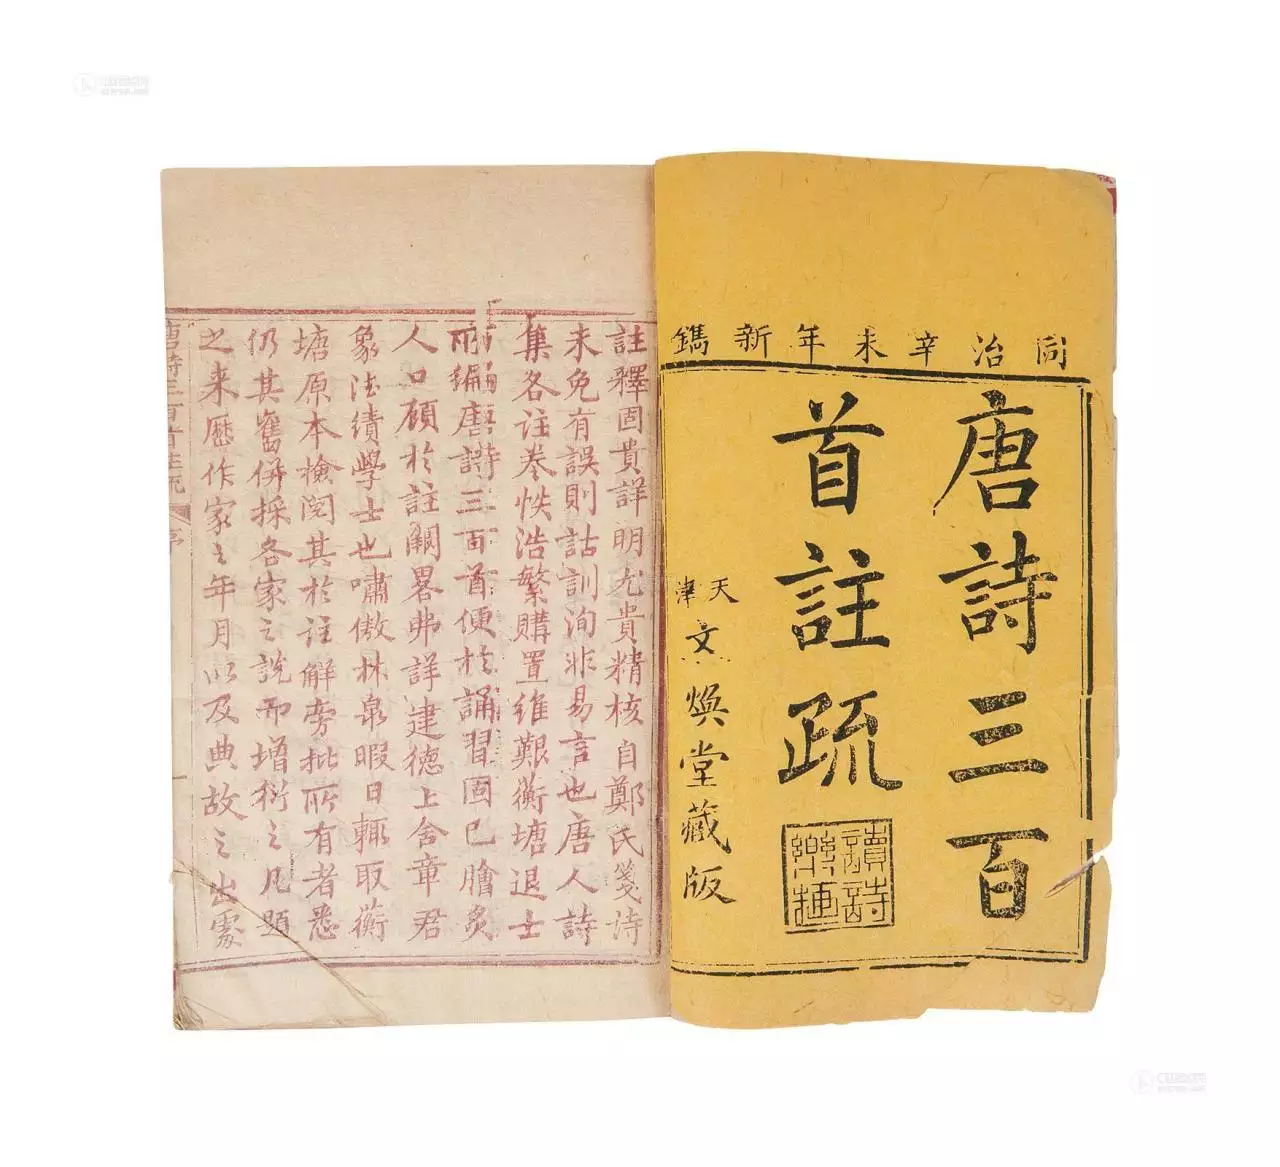 同治辛未年新鐫
唐詩三百
首註疏
天津
文煥堂藏版
讀詩
樂趣
註釋固貴詳明尤貴精核自鄭氏箋詩
未免有誤則詁訓洵非易言也唐人詩
集各註卷帙浩繁購置維艱蘅塘退士
所編唐詩三百首便於誦習固已膾炙
人口顧於註闕畧弗詳建德上舍章君
象法績學士也嘯傲林泉暇日輒取蘅
塘原本檢閱其於註解旁批所有者悉
仍其舊併採各家之說而增衍之凡題
之来歷作家之年月以及典故之出處
唐詩三百首註疏
序